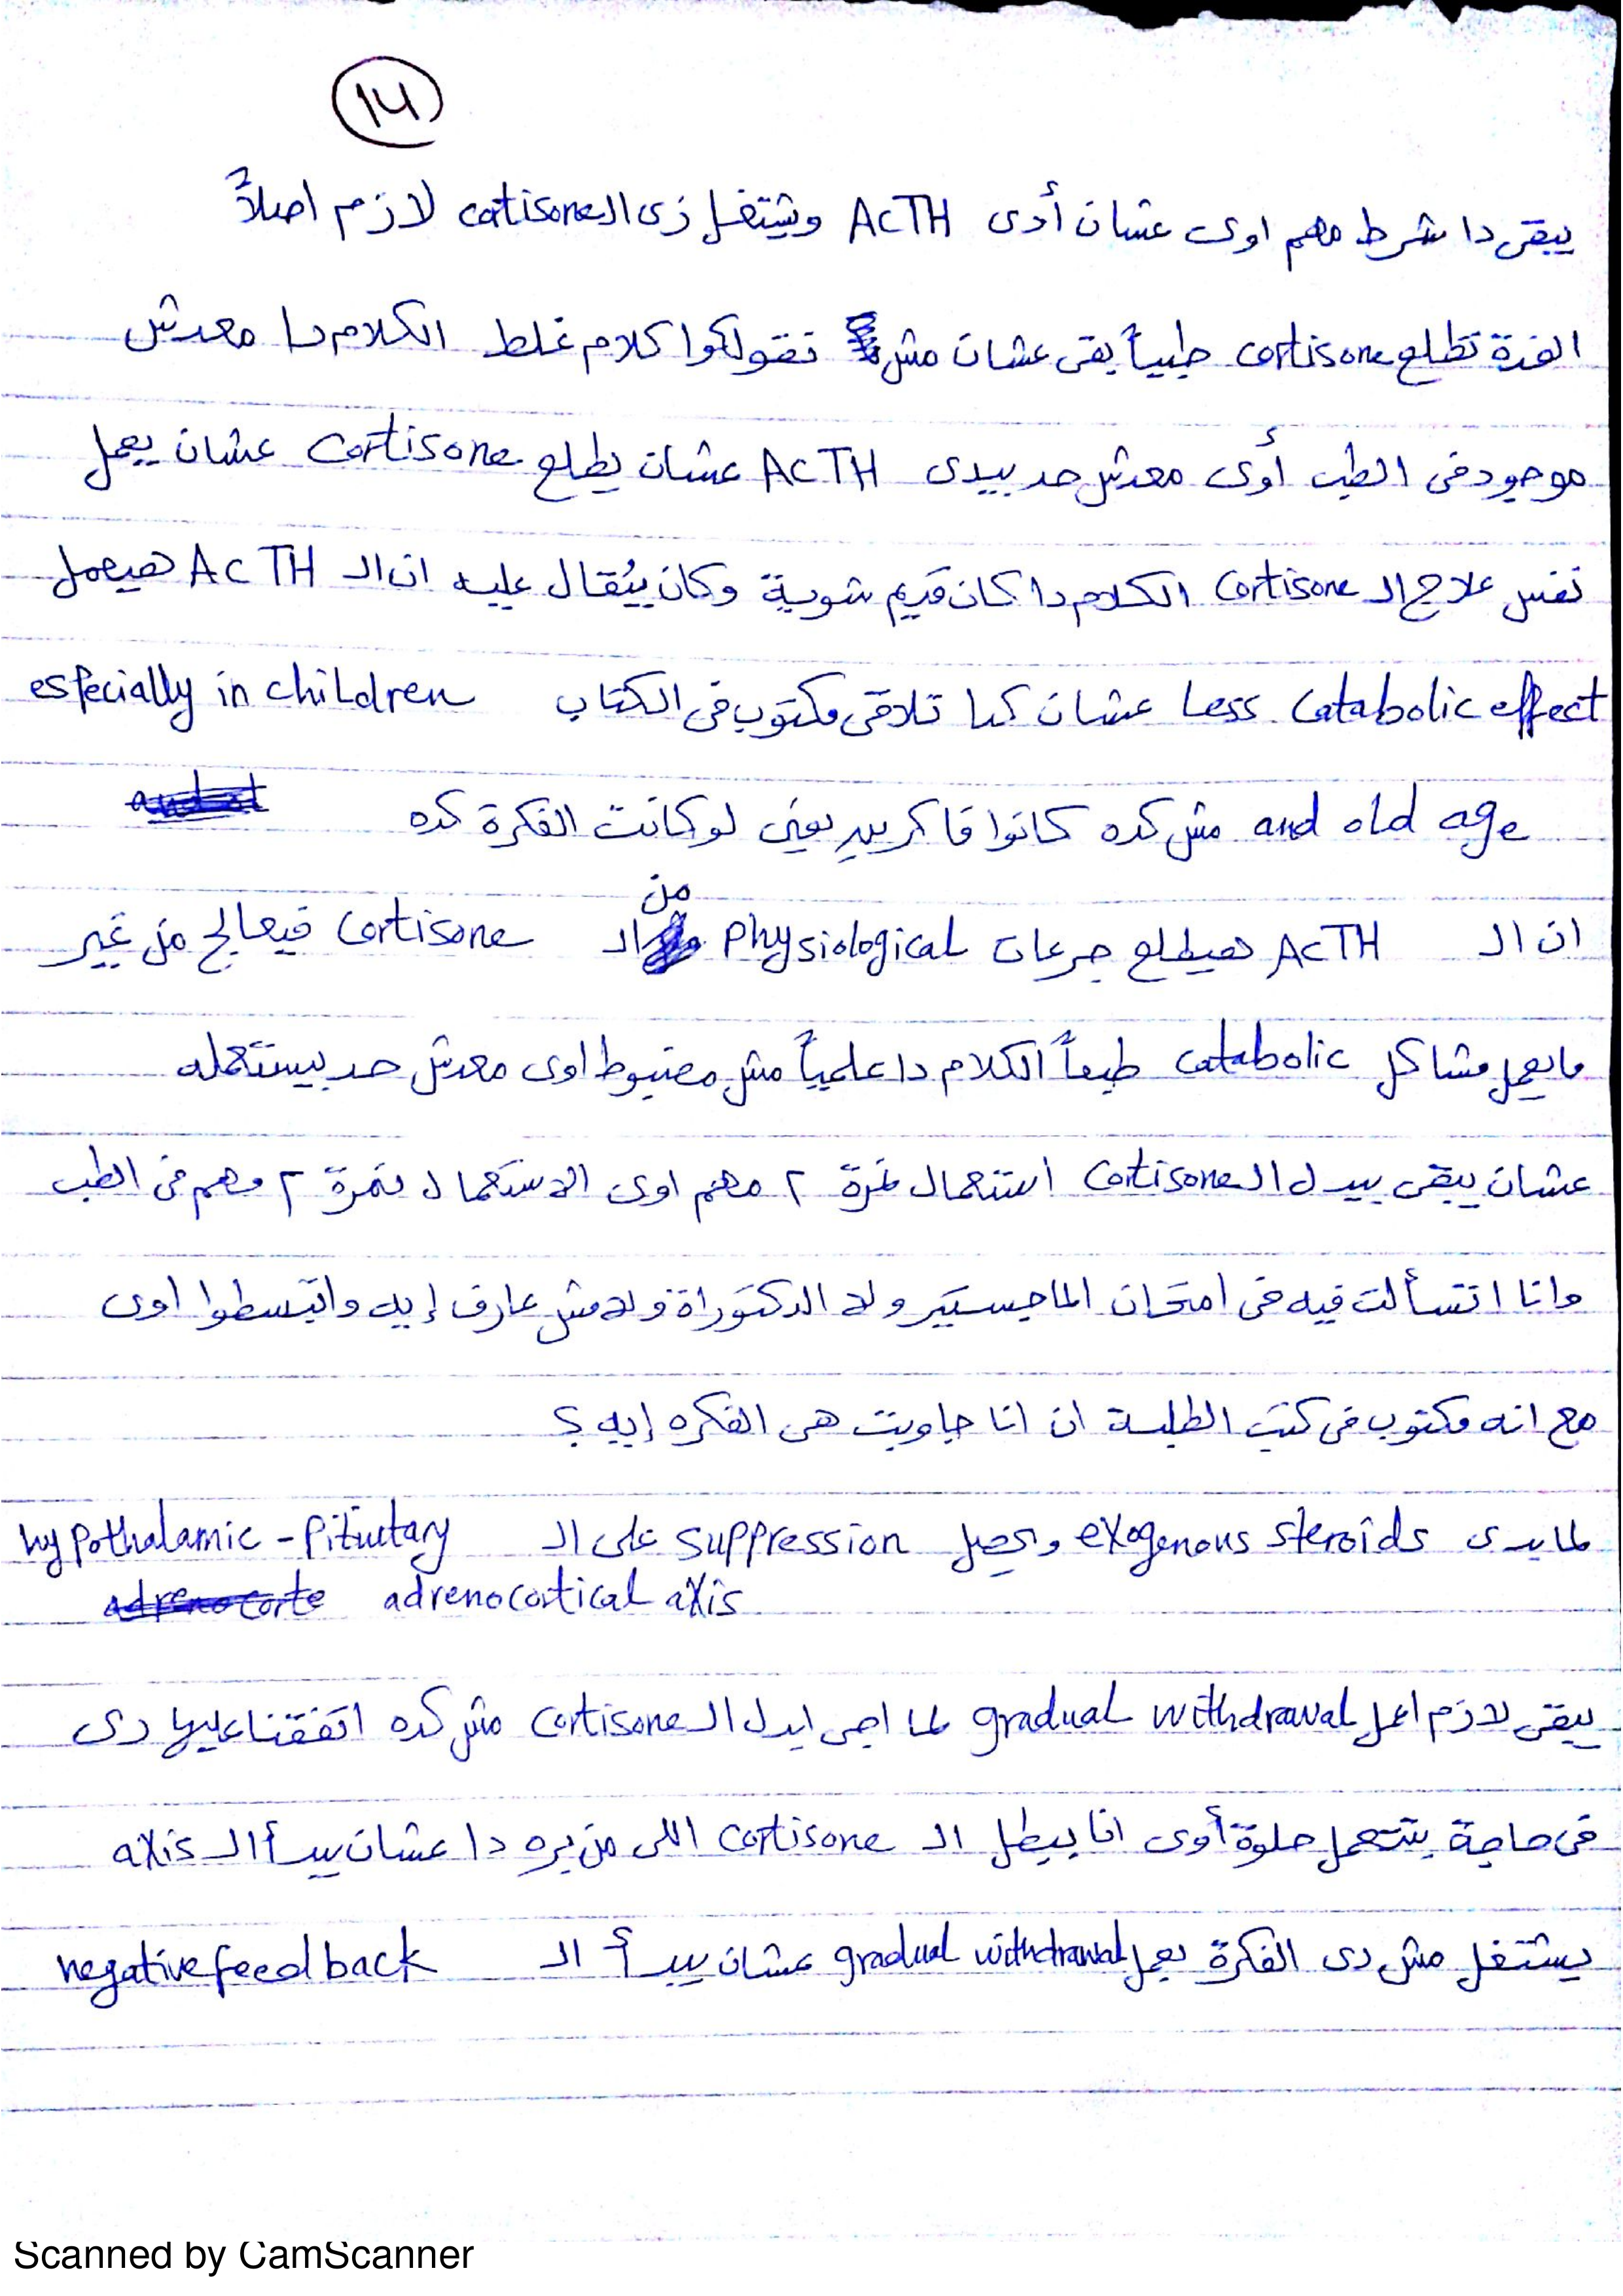 14
يبقى دا شرط مهم اوى عشان أدى ACTH ويشتغل زى الـ cortisone لازم اصلاً
الغدة تطلع cortisone طبياً بقى عشان مش نقولكوا كلام غلط الكلام دا معدش
موجود فى الطب أوى معدش حد بيدى ACTH عشان يطلع cortisone عشان يعمل
نفس علاج الـ cortisone الكلام دا كان قديم شوية وكان يُقال عليه ان الـ ACTH هيعمل
Less catabolic effect عشان كدا تلاقى مكتوب فى الكتاب especially in children
and old age مش كده كانوا فاكرين يعنى لو كانت الفكرة كده
ان الـ ACTH هيطلع جرعات physiological من الـ cortisone فيعالج من غير
مايعمل مشاكل catabolic طبعاً الكلام دا علمياً مش مضبوط اوى معدش حد بيستعمله
عشان يبقى بيدل الـ cortisone استعمال نمرة ٢ مهم اوى الاستعمال نمرة ٢ مهم فى الطب
وانا اتسألت فيه فى امتحان الماجيستير ولا الدكتوراة ولا مش عارف إيه واتبسطوا اوى
مع انه مكتوب فى كتب الطلبة ان انا جاوبت هى الفكره إيه ؟
لما يدى exogenous steroids ويحصل suppression على الـ hypothalamic - pitiutary
adrenocortical axis
يبقى لازم اعمل gradual withdrawal لما اجى ابدل الـ cortisone مش كده اتفقنا عليها دى
فى حاجة بتتعمل حلوة أوى انا ببطل الـ cortisone اللى من بره دا عشان يبدأ الـ axis
يشتغل مش دى الفكرة بعمل gradual withdrawal عشان يبدأ الـ negative feed back
Scanned by CamScanner